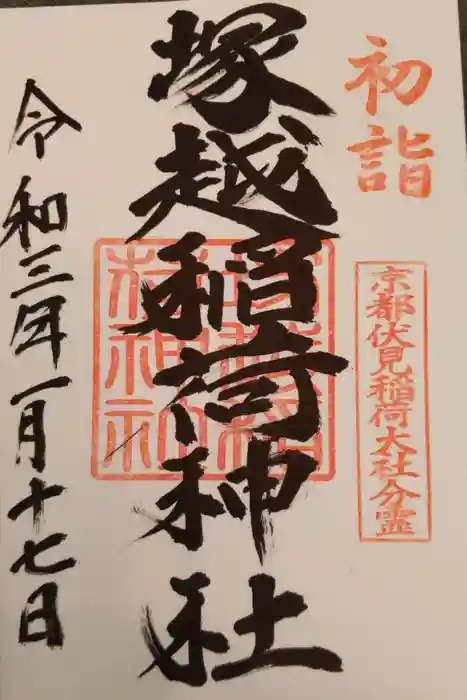 初詣
京都伏見稲荷大社分霊
塚越稲荷神社
令和三年一月十七日